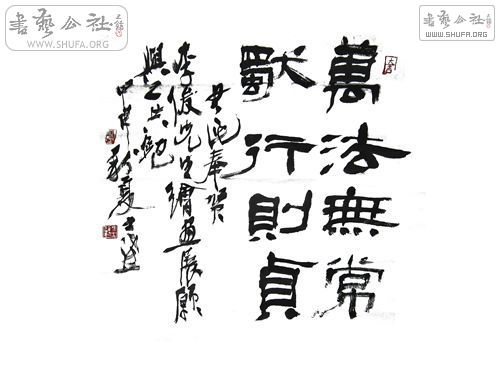 書藝公社
WWW.SHUFA.ORG
書藝公社
WWW.SHUFA.ORG
萬法無常
獨行則貞
書此奉賀
李俊先生繪畫展願
與之共勉
甲申夏